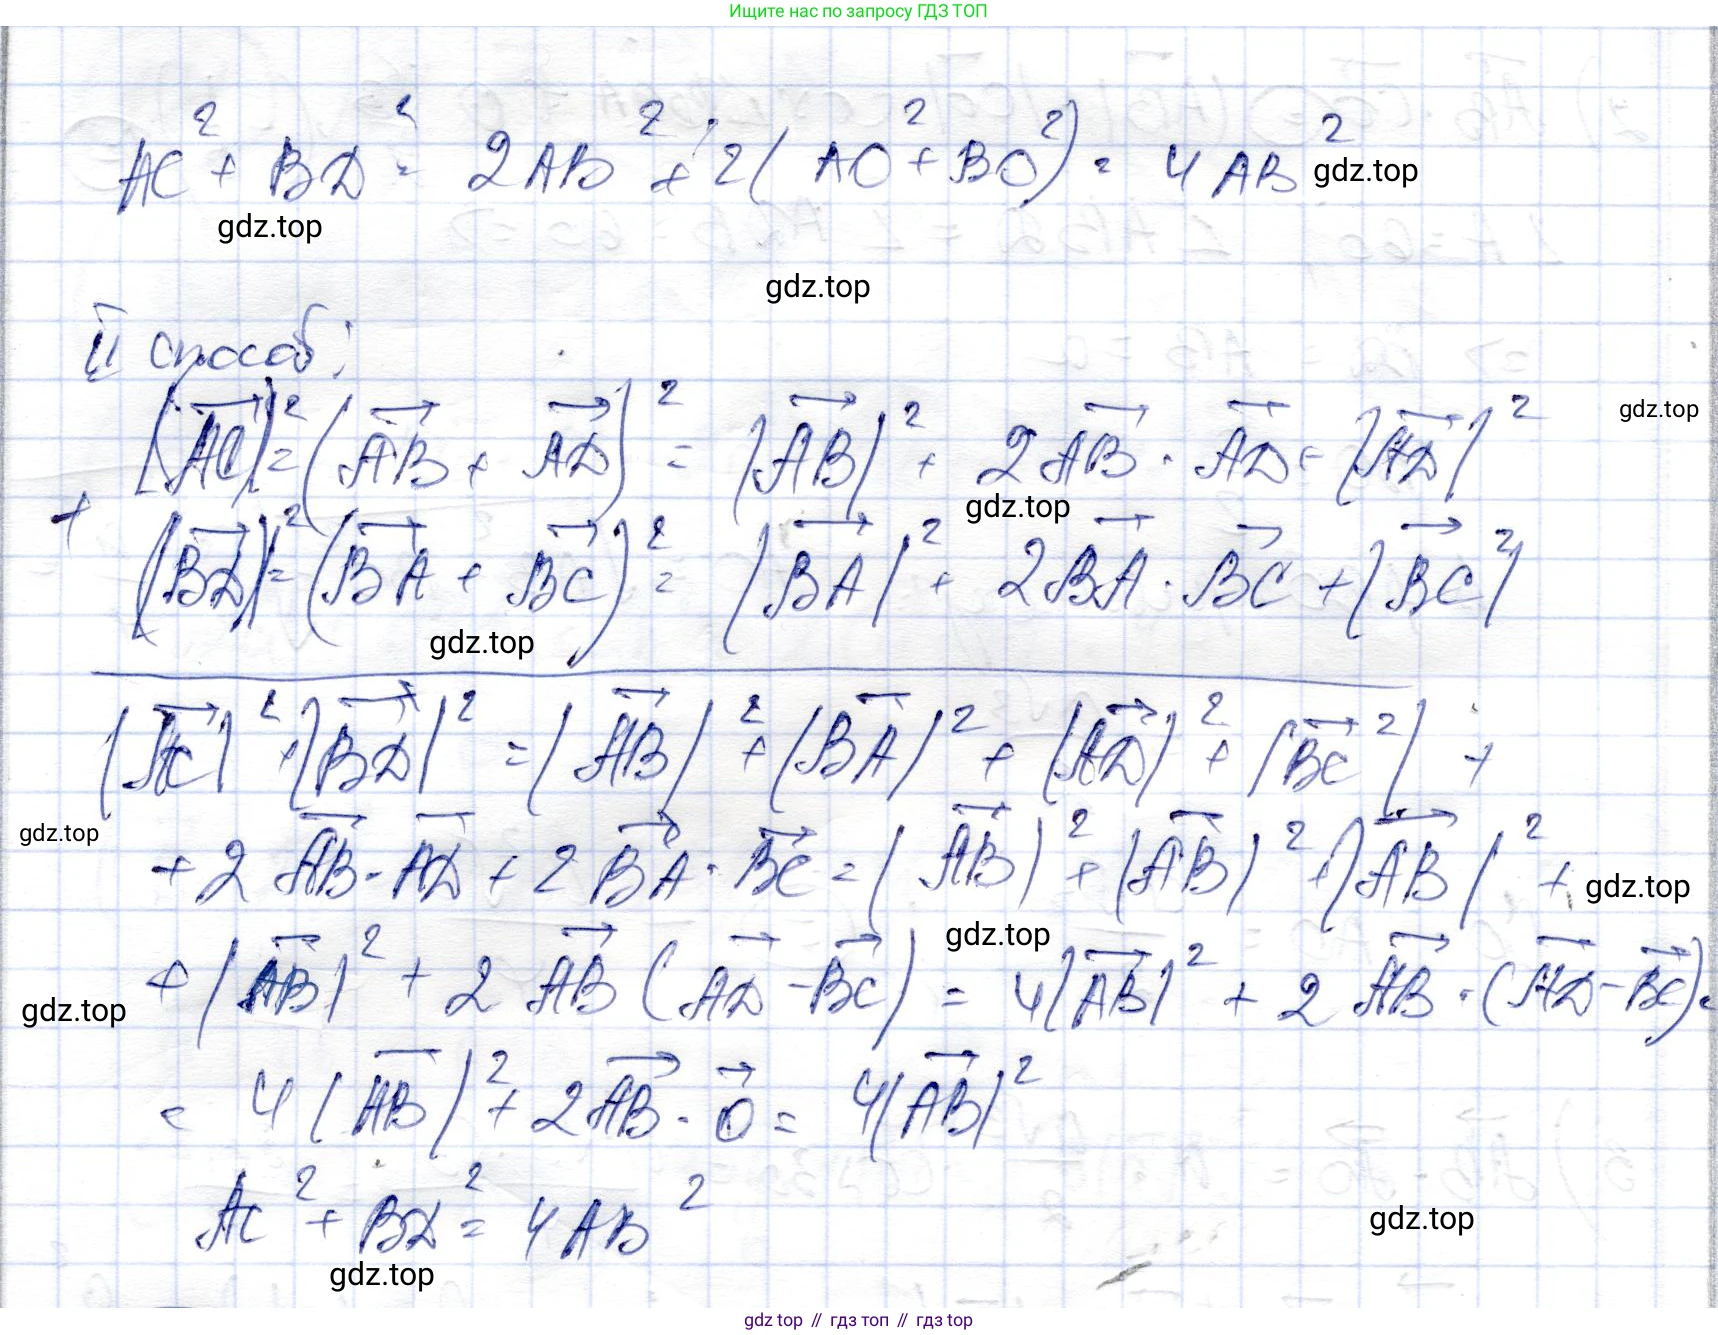 Ищите нас по запросу ГДЗ ТОП
AC² + BD² = 2AB² + 2(AO² + BO²) = 4AB² gdz.top
gdz.top
gdz.top
II способ:
|AC|² = (AB + AD)² = |AB|² + 2AB · AD + |AD|²
gdz.top
gdz.top
+
|BD|² = (BA + BC)² = |BA|² + 2BA · BC + |BC|²
gdz.top
|AC|² + |BD|² = |AB|² + |BA|² + |AD|² + |BC|² +
gdz.top
+ 2 AB · AD + 2 BA · BC = |AB|² + |AB|² + |AB|² + gdz.top
gdz.top
+ |AB|² + 2 AB (AD - BC) = 4|AB|² + 2 AB · (AD - BC) =
gdz.top
= 4 |AB|² + 2AB · 0 = 4|AB|²
AC² + BD² = 4AB²
gdz.top
gdz.top
gdz top // гдз топ // гдз top